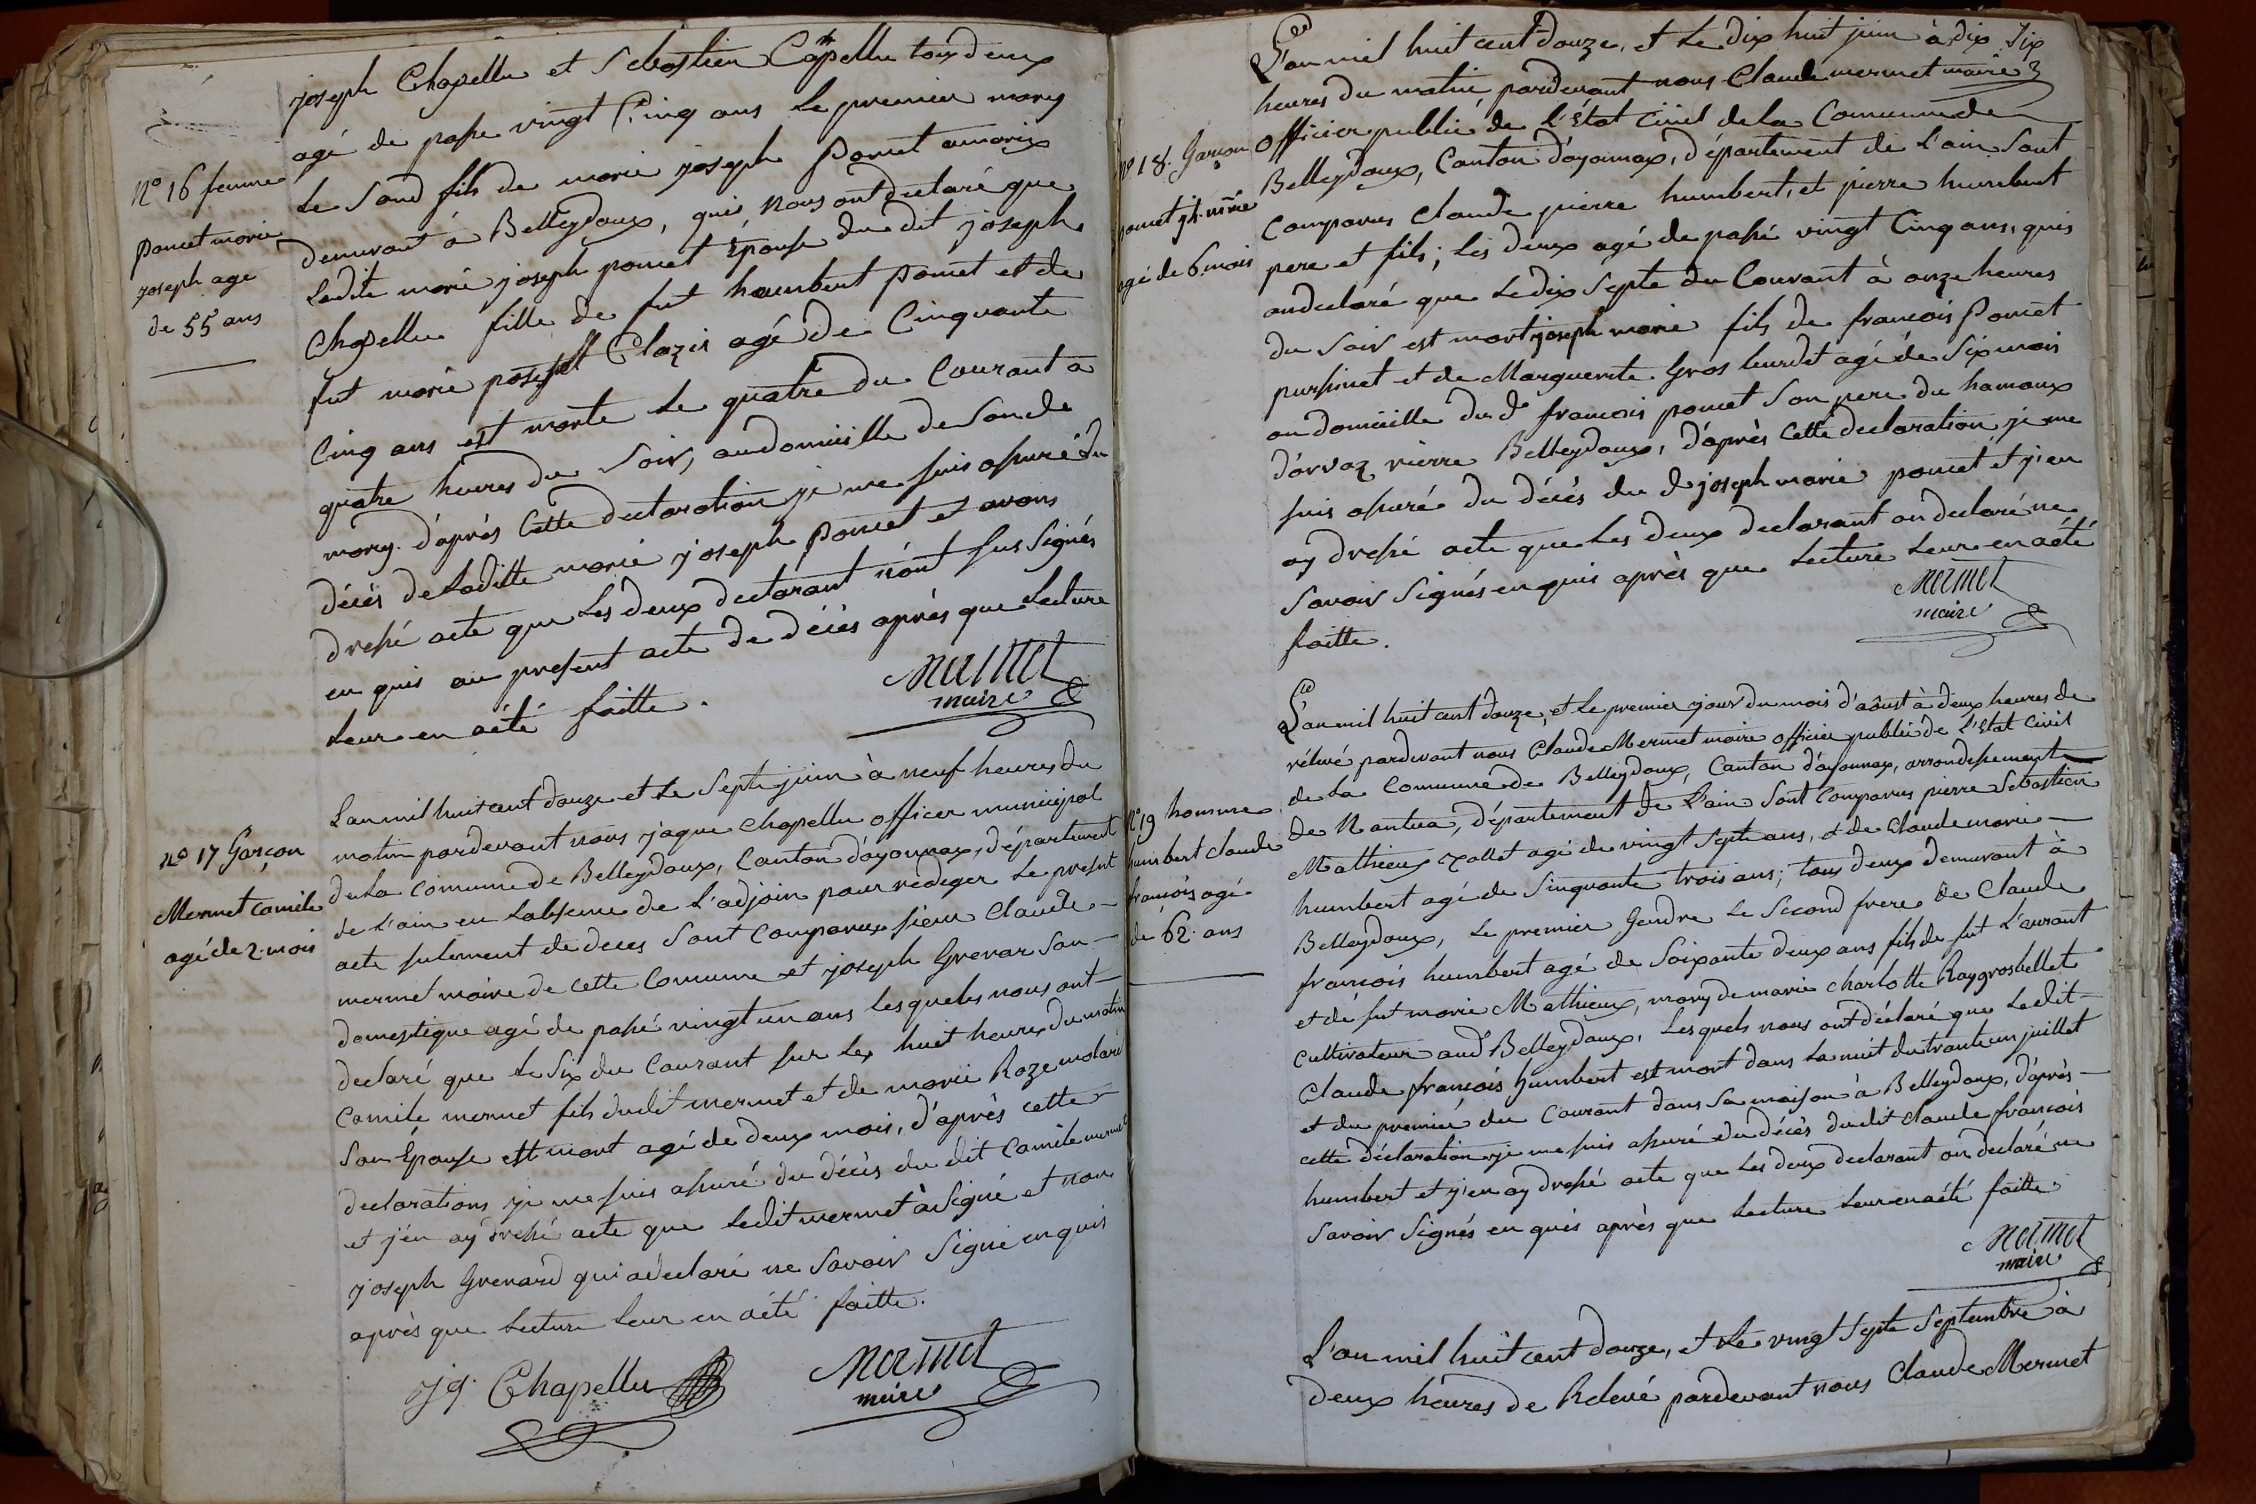 joseph Chapellu et Sebastien Capellu tous deux
agé de passé vingt Cinq ans le premier mary
Le Sond fils de marie joseph poncet amarix
demurant à Belleydoux, quis nous ont declaré que
Ladite marie joseph poncet Épouse du dit joseph
Chapellu fille de fut humbert poncet et de
fut marie joseph Clazis agé de Cinquante
Cinq ans est morte le quatre du Courant a
quatre heures du Soir, au domicille de Son de
mary. d'aprés Cette declaration je me suis assuré du
décés de Laditte marie joseph poncet et avons
dressé acte que Les deux declarant n'ont sus Signés
en quis au present acte de décés aprés que Lecture
Leur en aété faitte.
Mermet
maire
N° 16 femme
poncet marie
joseph age
de 55 ans
L'an mil huit cent douze et le Sept juin à neuf heures du
matin pardevant nous jaque Chapellu officer municipal
de La Comune de Belleydoux, Canton d'ayonnax, département
de L'ain en Labsence de L'adjoin pour rediger Le present
acte sulement de deces Sont Comparus sieur Claude
mermet maire de cette Comune et joseph Grenar Son
domestique agé de passé vingt un ans lesquels nous ont
declaré que le Six du Courant sur les huit heures du matin
Camile mermet fils dudit mermet et de marie Roze molard
Son Épouse est mort agé de deux mois, d'aprés cette
declarations je me suis assuré du décés du dit Camile mermet
et j'en ay dressé acte que Ledit mermet à Signé et non
joseph Grenard qui adeclaré ne Savoir Signé en quis
aprés que Lecture Leur en aété faitte.
Jq. Chapellu
Mermet
maire
N° 17 Garçon
Mermet Camile
agé de 2 mois
L'an mil huit cent douze, et Le dix huit juin à dix Six
heures du matin pardevant nous Claude mermet maire
officier public de L'état Civil de La Commune de
Belleydoux, Canton d'ayonnax, département de L'ain Sont
Comparus Claude pierre humbert, et pierre humbert
pere et fils; Les deux agé de passé vingt Cinq ans, quis
on declaré que Le dix Septe du Courant à onze heures
du Soir est mort joseph marie fils de francois Poncet
pussinet et de Marguerite Gros burdet agé de Six mois
au domicille du d francois poncet Son pere du hamaux
d'orvaz rierre Belleydoux, d'aprés Cette declaration je me
suis assuré du décés du d joseph marie poncet et j'en
ay dressé acte que Les deux declarant on declaré ne
Savoir Signés en quis aprés que Lecture Leur en aété
faitte.
Mermet
maire
N° 18. Garçon
poncet jh. marie
agé de 6 mois
L'an mil huit cent douze, et Le premier jour du mois d'aôust à deux heures de
rélevé pardevant nous Claude Mermet maire officier public de L'état Civil
de La Commune de Belleydoux, Canton d'ayonnax, arrondissement
de Nantua, département de L'ain Sont Comparus pierre Sebastien
Mathieux zallet agé de vingt Sept ans, et de Claude marie
humbert agé de Sinquante trois ans; tous deux demurant à
Belleydoux, Le premier Gendre Le Second frere de Claude
francois humbert agé de Soixante deux ans fils de fut L'aurant
et dé fut marie Mathieux, mary de marie charlotte Raygrosbellet
Cultivateur aud Belleydoux, Lesquels nous ont déclaré que Ledit
Claude francois humbert est mort dans La nuit du trante un juillet
et du premié du Courant dans Sa maison à Belleydoux, d'aprés
cette déclaration je me suis assuré du décés dudit Claude francois
humbert et j'en ay dressé acte que Les deux declarant on declaré ne
Savoir Signés en quis aprés que Lecture Leur en aété faitte.
Mermet
maire
N° 19 homme
humbert claude
françois agé
de 62 ans
L'an mil huit cent douze, et Le vingt Septe Septembre à
deux heures de Relevé pardevant nous Claude Mermet